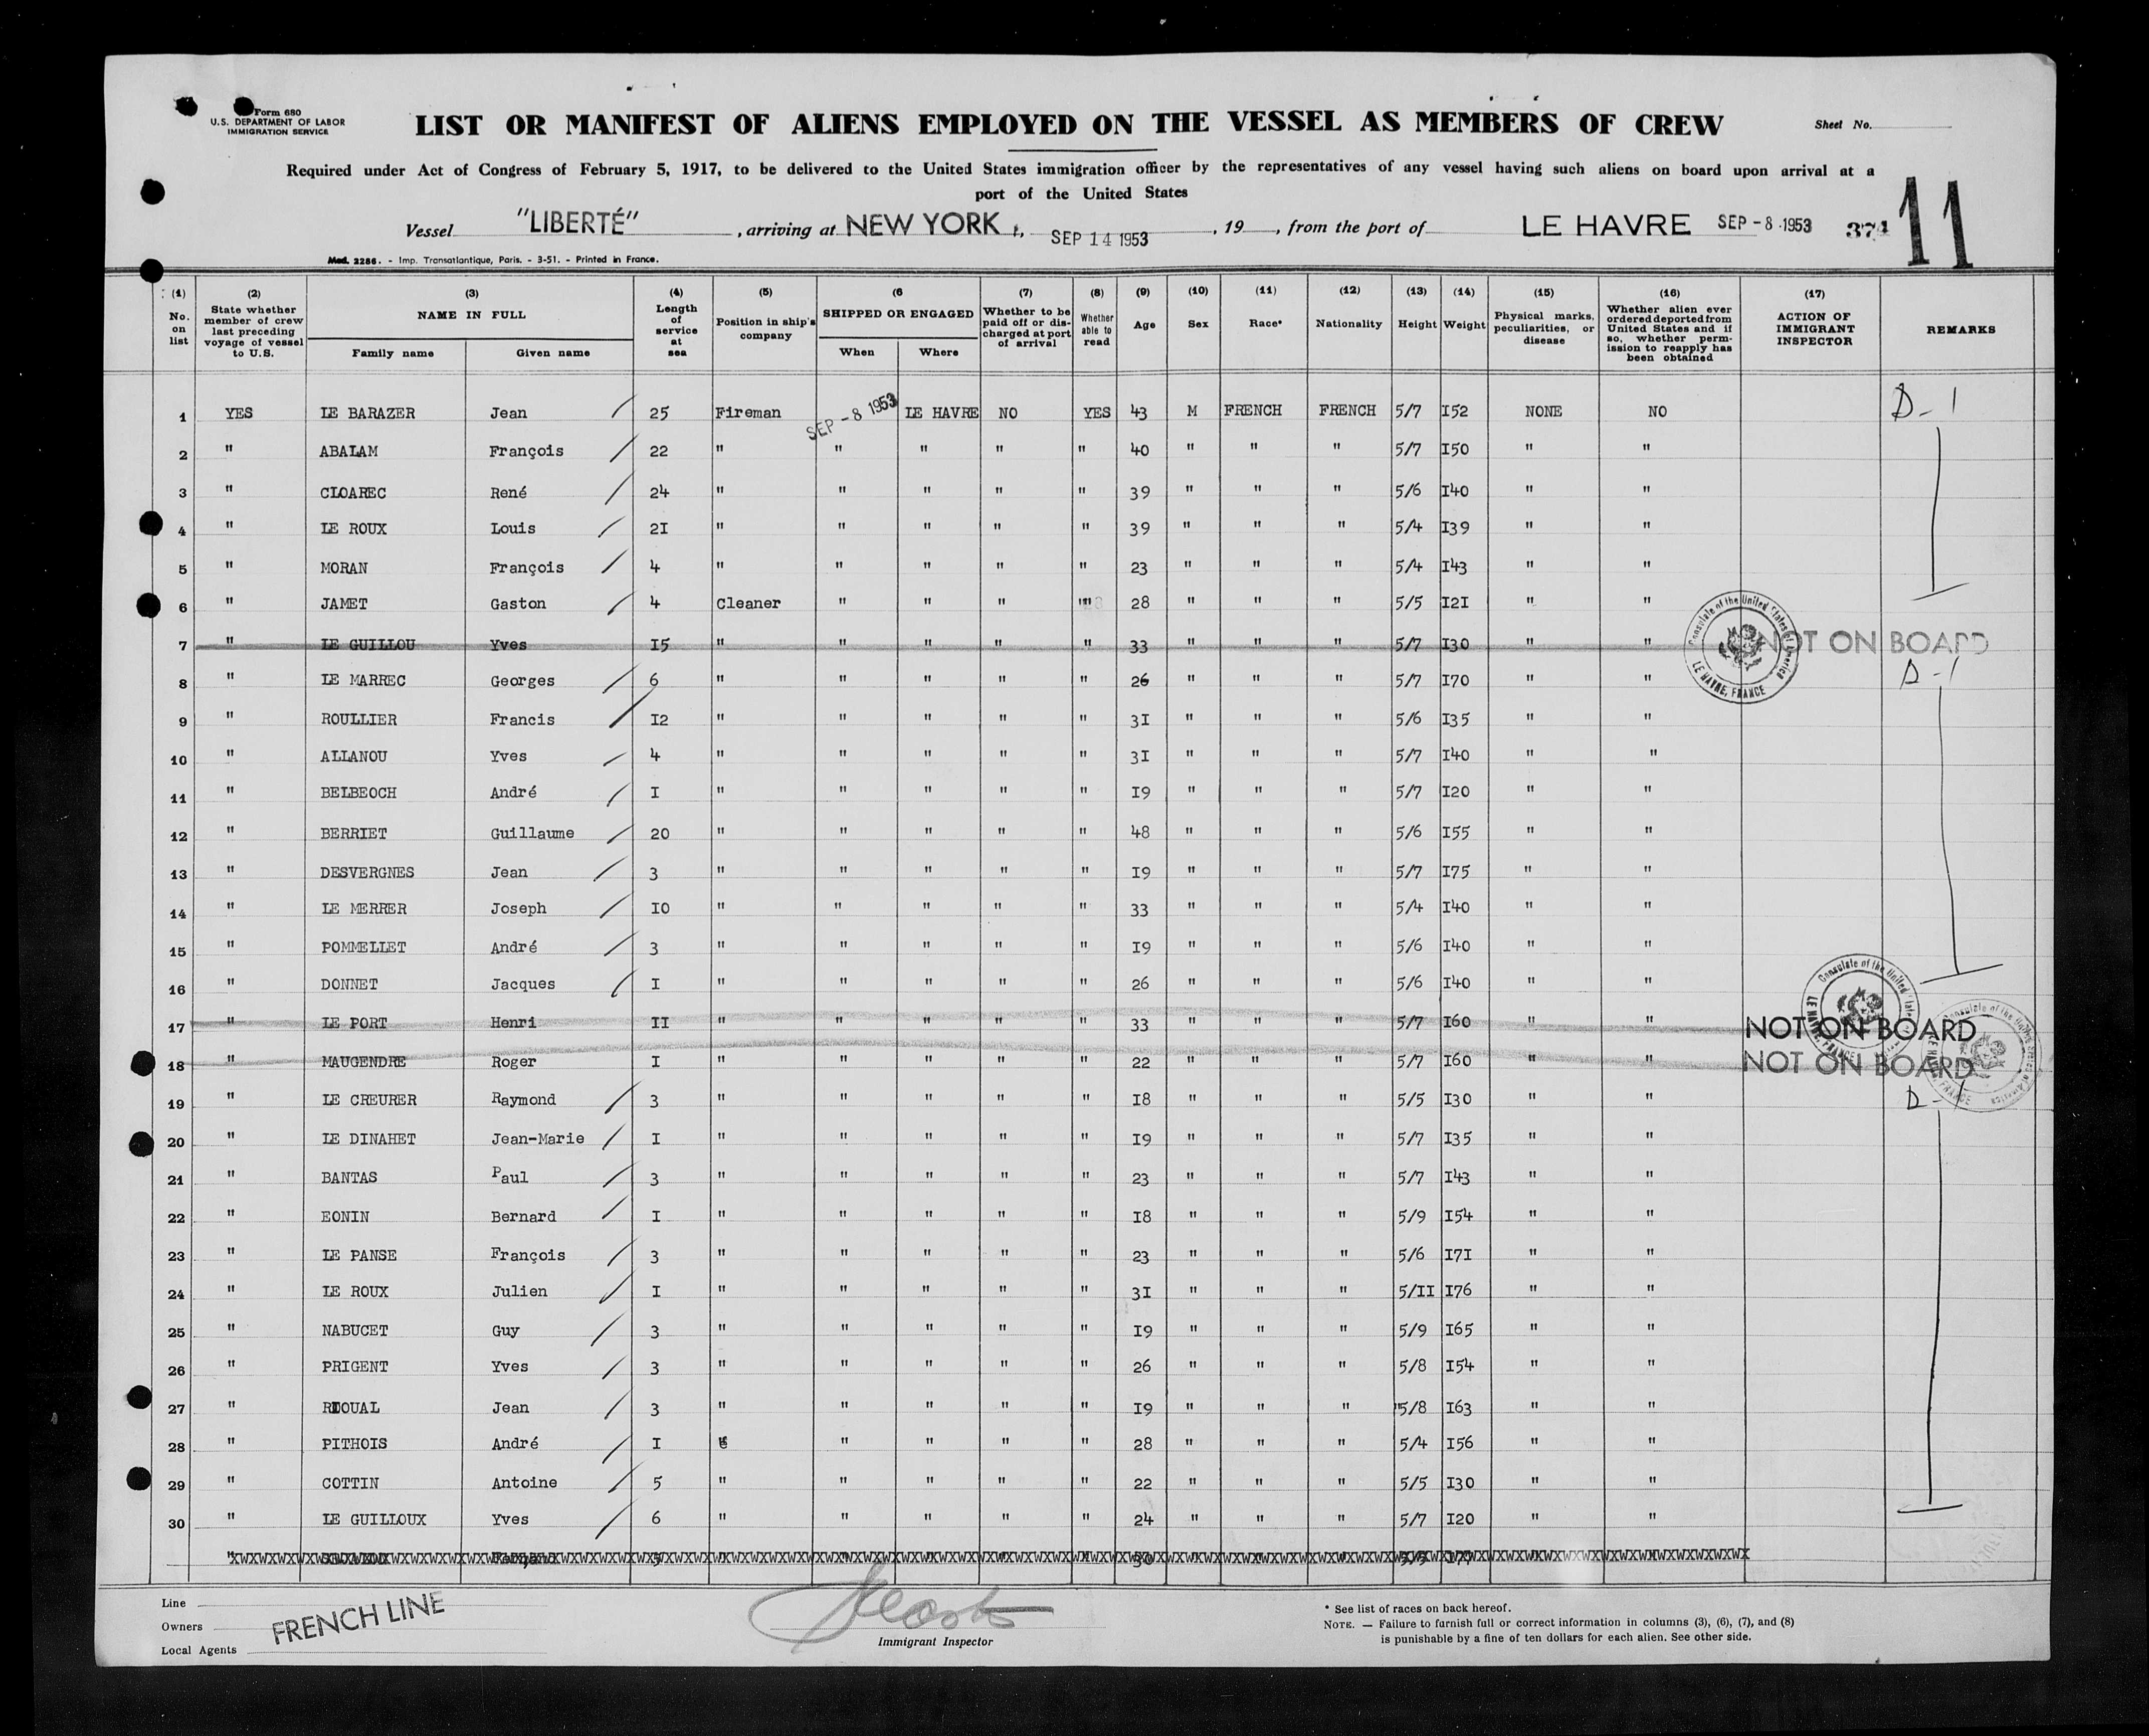 Form 680
U.S. DEPARTMENT OF LABOR
IMMIGRATION SERVICE
LIST OR MANIFEST OF ALIENS EMPLOYED ON THE VESSEL AS MEMBERS OF CREW
Sheet No.
Required under Act of Congress of February 5, 1917, to be delivered to the United States immigration officer by the representatives of any vessel having such aliens on board upon arrival at a
port of the United States
Vessel "LIBERTÉ", arriving at NEW YORK, SEP 14 1953, 19, from the port of LE HAVRE SEP -8 1953 374 11
Mod. 2286. - Imp. Transatlantique, Paris. - 3-51. - Printed in France.
(1) No. on list (2) State whether member of crew last preceding voyage of vessel to U.S. (3) NAME IN FULL Family name Given name (4) Length of service at sea (5) Position in ship's company (6 SHIPPED OR ENGAGED When Where (7) Whether to be paid off or discharged at port of arrival (8) Whether able to read (9) Age (10) Sex (11) Race* (12) Nationality (13) Height (14) Weight (15) Physical marks, peculiarities, or disease (16) Whether alien ever ordered deported from United States and if so, whether permission to reapply has been obtained (17) ACTION OF IMMIGRANT INSPECTOR REMARKS
1 YES LE BARAZER Jean 25 Fireman SEP -8 1953 LE HAVRE NO YES 43 M FRENCH FRENCH 5/7 I52 NONE NO D-1
2 " ABALAM François 22 " " " " " 40 " " " 5/7 I50 " "
3 " CLOAREC René 24 " " " " " 39 " " " 5/6 I40 " "
4 " LE ROUX Louis 2I " " " " " 39 " " " 5/4 I39 " "
5 " MORAN François 4 " " " " " 23 " " " 5/4 I43 " "
6 " JAMET Gaston 4 Cleaner " " " " 28 " " " 5/5 I2I " "
7 " LE GUILLOU Yves I5 " " " " " 33 " " " 5/7 I30 " " NOT ON BOARD
8 " LE MARREC Georges 6 " " " " " 26 " " " 5/7 I70 " " D-1
9 " ROULLIER Francis I2 " " " " " 3I " " " 5/6 I35 " "
10 " ALLANOU Yves 4 " " " " " 3I " " " 5/7 I40 " "
11 " BELBEOCH André I " " " " " I9 " " " 5/7 I20 " "
12 " BERRIET Guillaume 20 " " " " " 48 " " " 5/6 I55 " "
13 " DESVERGNES Jean 3 " " " " " I9 " " " 5/7 I75 " "
14 " LE MERRER Joseph I0 " " " " " 33 " " " 5/4 I40 " "
15 " POMMELLET André 3 " " " " " I9 " " " 5/6 I40 " "
16 " DONNET Jacques I " " " " " 26 " " " 5/6 I40 " "
17 " LE PORT Henri II " " " " " 33 " " " 5/7 I60 " " NOT ON BOARD
18 " MAUGENDRE Roger I " " " " " 22 " " " 5/7 I60 " " NOT ON BOARD
19 " LE CREURER Raymond 3 " " " " " I8 " " " 5/5 I30 " " D-1
20 " LE DINAHET Jean-Marie I " " " " " I9 " " " 5/7 I35 " "
21 " BANTAS Paul 3 " " " " " 23 " " " 5/7 I43 " "
22 " EONIN Bernard I " " " " " I8 " " " 5/9 I54 " "
23 " LE PANSE François 3 " " " " " 23 " " " 5/6 I7I " "
24 " LE ROUX Julien I " " " " " 3I " " " 5/II I76 " "
25 " NABUCET Guy 3 " " " " " I9 " " " 5/9 I65 " "
26 " PRIGENT Yves 3 " " " " " 26 " " " 5/8 I54 " "
27 " RIOUAL Jean 3 " " " " " I9 " " " 5/8 I63 " "
28 " PITHOIS André I " " " " " 28 " " " 5/4 I56 " "
29 " COTTIN Antoine 5 " " " " " 22 " " " 5/5 I30 " "
30 " LE GUILLOUX Yves 6 " " " " " 24 " " " 5/7 I20 " "
Consulate of the United States of America LE HAVRE, FRANCE
Consulate of the United States LE HAVRE, FRANCE
Consulate of the United States of America LE HAVRE, FRANCE
Line
Owners
Local Agents
FRENCH LINE
Immigrant Inspector
* See list of races on back hereof.
NOTE. — Failure to furnish full or correct information in columns (3), (6), (7), and (8)
is punishable by a fine of ten dollars for each alien. See other side.